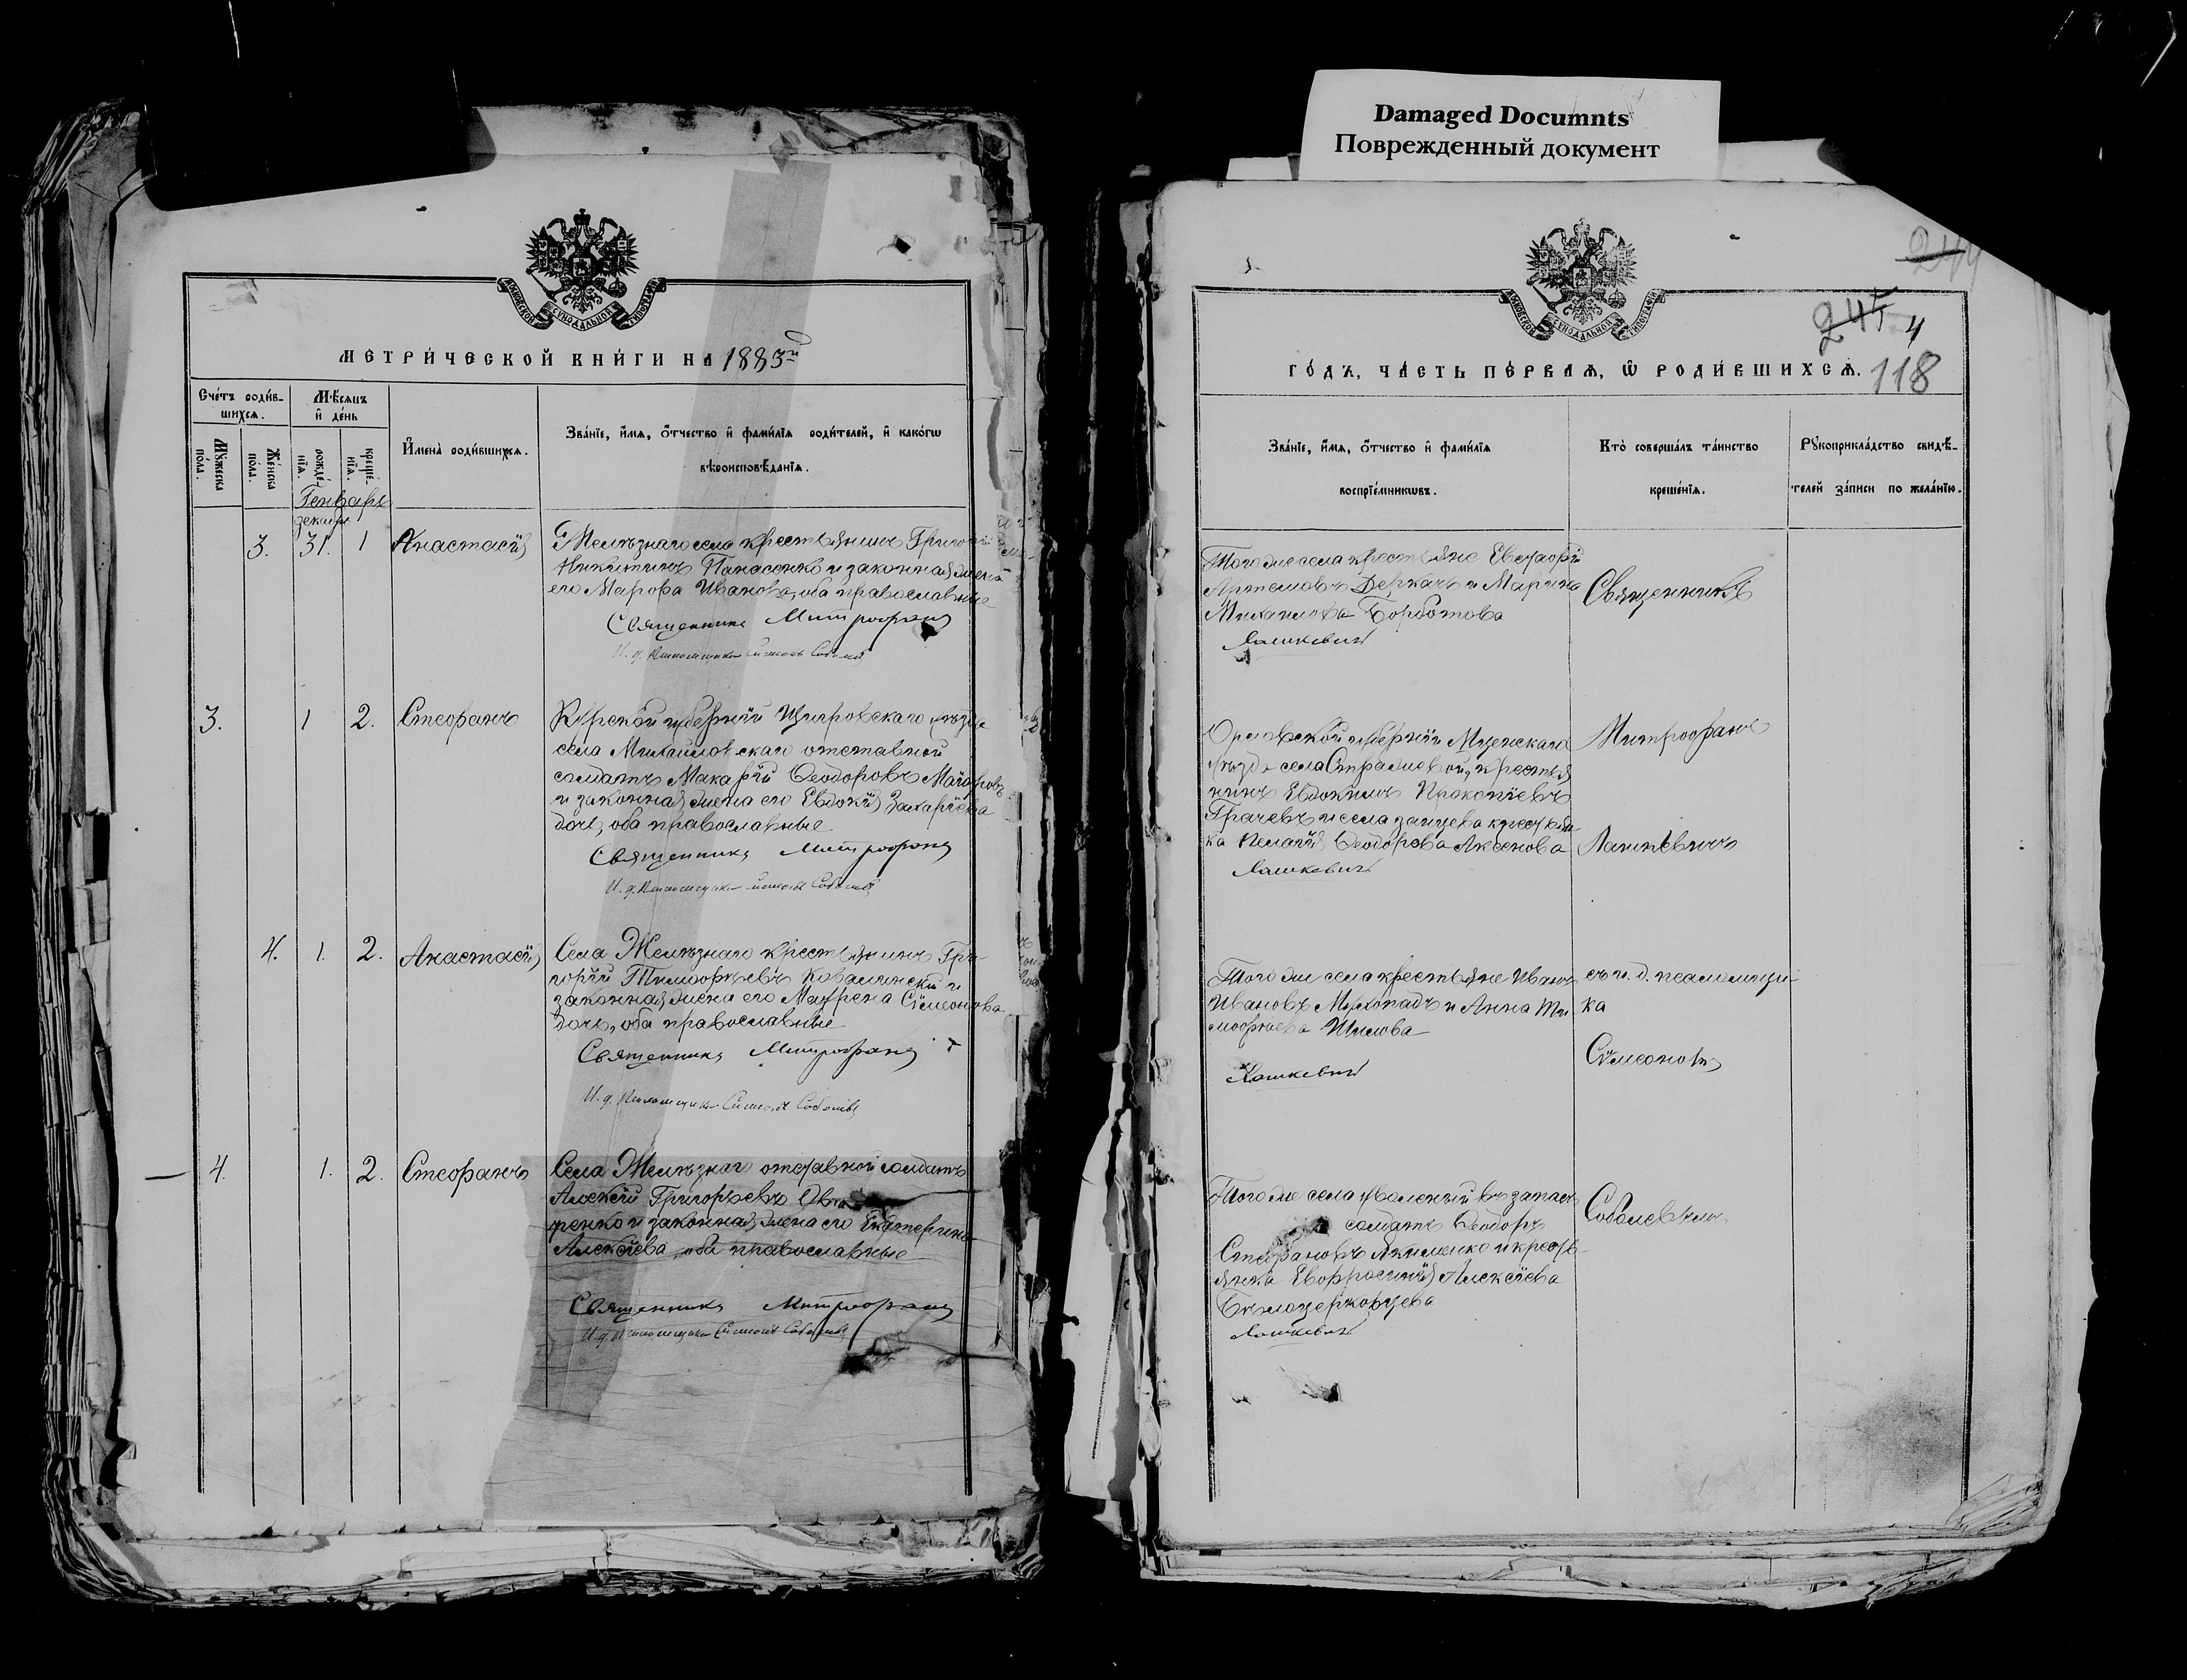 Damaged Documnts
Поврежденный документ
МОСКОВСКОЙ СѴНОДАЛЬНОЙ ТИПОГРАФІИ
МЕТРИ́ЧЕСКОЙ КНИ́ГИ НА 1883й
Сче́тъ роди́в-
шихсѧ.
Мѣ́сѧцъ
и҆ де́нь
Мꙋ́жеска
по́ла.
Же́нска
по́ла.
рожде́-
нїѧ.
креще́-
нїѧ.
И҆мена̀ роди́вшихсѧ.
Зва́нїе, и҆́мѧ, ѻ҆́тчество и҆ фами́лїѧ роди́телей, и҆ како́гѡ
вѣроисповѣ́данїѧ.
Генварь
декабр
3. 31. 1 Анастасія
Желѣзнаго села крестьянинъ Григорій
Никитинъ Панасенко и законная жена
его Марфа Иванова, оба православные
Священникъ Митрофанъ
И. д. Псаломщика Симеонъ
3. 1 2. Стефанъ
Курской губерніи Щигровскаго уѣзда
села Михайловскаго отставной
солдатъ Макарій Ѳеодоровъ Маіоровъ
и законная жена его Евдокія Захаріева
дочь, оба православные
Священникъ Митрофанъ
И. д. Псаломщика Симеонъ
4. 1. 2. Анастасія
Села Желѣзнаго крестьянинъ Гри-
горій Тимофѣевъ Ковалинскій и
законная жена его Маѳрена Сѵмеонова
дочь, оба православные
Священникъ Митрофанъ
И. д. Псаломщика Симеонъ Соболевъ
4. 1. 2. Стефанъ
Села Желѣзнаго отставной солдатъ
Алексій Григорьевъ
ренко и законная жена его Екатерина
Алексіева, оба православные
Священникъ Митрофанъ
И. д. Псаломщика Симеонъ
244
245 4
МОСКОВСКОЙ СѴНОДАЛЬНОЙ ТИПОГРАФІИ
ГО́ДЪ, ЧА́СТЬ ПЕ́РВАѦ, Ѽ РОДИ́ВШИХСѦ. 118
Зва́нїе, и҆́мѧ, ѻ҆́тчество и҆ фами́лїѧ
воспрїе́мникѡвъ.
Кто̀ соверша́лъ та́инство
креще́нїѧ.
Рꙋкоприкла́дство свидѣ́-
телей за́писи по жела́нїю.
Того же села крестьяне Евстафій
Артемовъ Деркачъ и Марина
Михаилова Борботова
Лашкевичъ
Священникъ
Орловской губерніи Мценскаго
уѣзда села крестья
нинъ Евдокимъ Прокопіевъ
Грачевъ и села Зайцева крестьян-
ка Пелагія Ѳеодорова Аксенова
Лашкевичъ
Митрофанъ
Лашкевичъ
Того же села крестьяне Иванъ
Ивановъ и Анна Ти
мофѣева Шилова
Лашкевичъ
съ и. д. псаломщи-
ка
Сѵмеономъ
Того же села уволеный въ запасъ
солдатъ Ѳеодоръ
Стефановъ Якименко и кресть-
янка Евфросинія Алексіева
Бѣлоцерковцева
Лашкевичъ
Соболевымъ